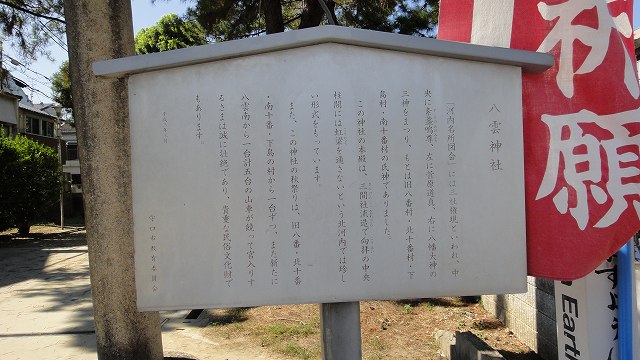 八雲神社
「河内名所図会」には三社権現といわれ、中
央に素盞鳴尊、左に菅原道真、右に八幡大神の
三神をまつり、もとは旧八番村・北十番村・下
島村・南十番村の氏神でありました。
この神社の本殿は、三間社流造で向拝の中央
柱間には虹梁を通さないという北河内では珍し
い形式をもっています
また、この神社の秋祭りは、旧八番・北十番
・南十番・下島の村から一台ずつ、また新たに
八雲南から一台計五台の山車が競って宮入りす
るさまは誠に壮絶であり、貴重な民俗文化財で
もあります。
守口市教育委員会
祈願
Earth